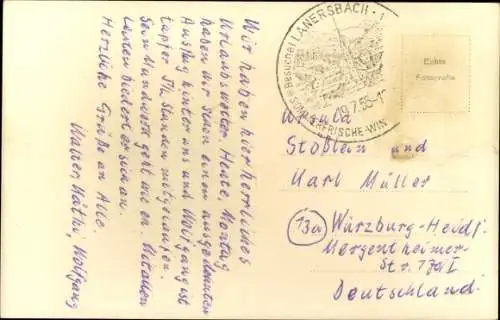 Wir haben hier herrliches
Urlaubswetter. Heute, Montag
haben wir schon einen ausgedehnten
Ausflug hinter uns und Wolfgang ist
tapfer 7½ Stunden mitgelaufen.
Sein Mundwerk geht wie en. Mit allen
Leuten biedert er sich an.
Herzliche Grüße an Alle
Walter, Käthi, Wolfgang
Besuchet LANERSBACH
SOMMERFRISCHE-WIN
19.7.55-1
Echte
Fotografie
Ursula
Stößlein und
Karl Müller
(13a) Würzburg-Heidf.
Mergentheimer-
Str. I
Deutschland